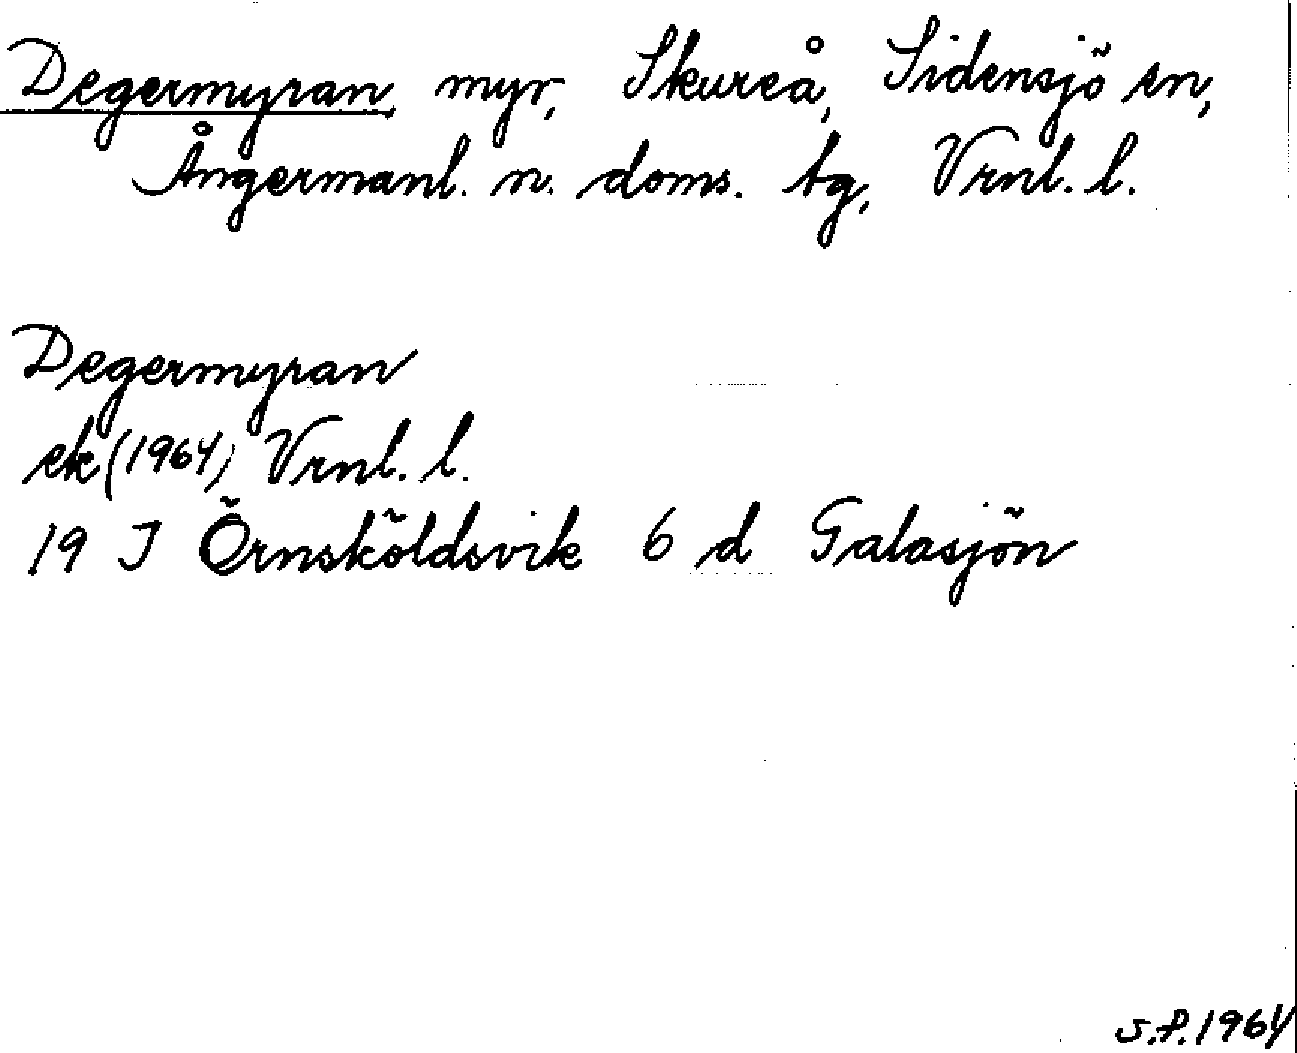 Degermyran, myr, Skureå, Sidensjö sn,
Ångermanl. n. doms. tg, Vrnl. l.
Degermyran
ek (1964) Vrnl. l.
19 J Örnsköldsvik 6 d Galasjön
S.P. 1964